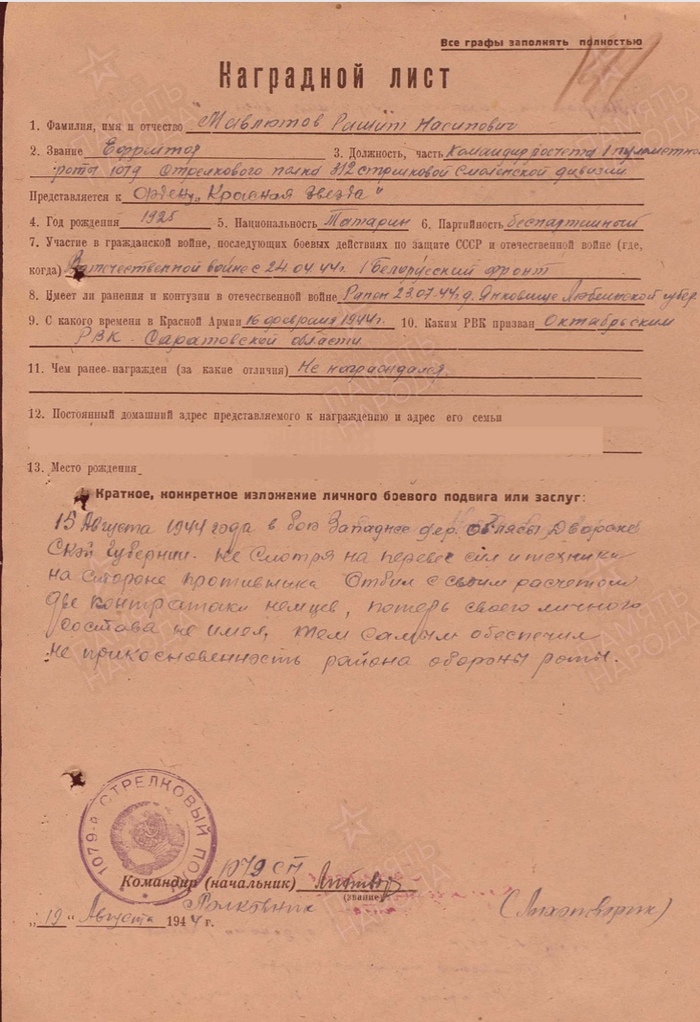 Все графы заполнять полностью
Наградной лист
1. Фамилия, имя и отчество Мавлютов Рашит Насипович
2. Звание Ефрейтор 3. Должность, часть Командир расчета 1 пулеметной
рота 1079 Стрелкового полка 312 стрелковой Смоленской дивизии
Представляется к Ордену „Красная Звезда"
4. Год рождения 1925 5. Национальность Татарин 6. Партийность беспартийный
7. Участие в гражданской войне, последующих боевых действиях по защите СССР и отечественной войне (где,
когда) В отечественной войне с 24.04.44г. 1 Белорусский фронт
8. Имеет ли ранения и контузии в отечественной войне Ранен 23.07.44г. д. Янковице Люблинской губер
9. С какого времени в Красной Армии 16 февраля 1944г. 10. Каким РВК призван Октябрьским
РВК Саратовской области
11. Чем ранее награжден (за какие отличия) Не награждался
12. Постоянный домашний адрес представляемого к награждению и адрес его семьи
13. Место рождения
I. Краткое, конкретное изложение личного боевого подвига или заслуг:
15 Августа 1944 года в бою Западнее дер.
Ской Губернии. не Смотря на перевес сил и техники
на стороне противника Отбил с своим расчетом
две контратаки немцев, потерь своего личного
состава не имея, тем самым обеспечил
не прикосновенность района обороны роты.
1079-й СТРЕЛКОВЫЙ ПОЛ
1079 СП
Командир (начальник)
(звание)
Полковник
„19" Августа 1944 г.
ПАМЯТЬ НАРОДА